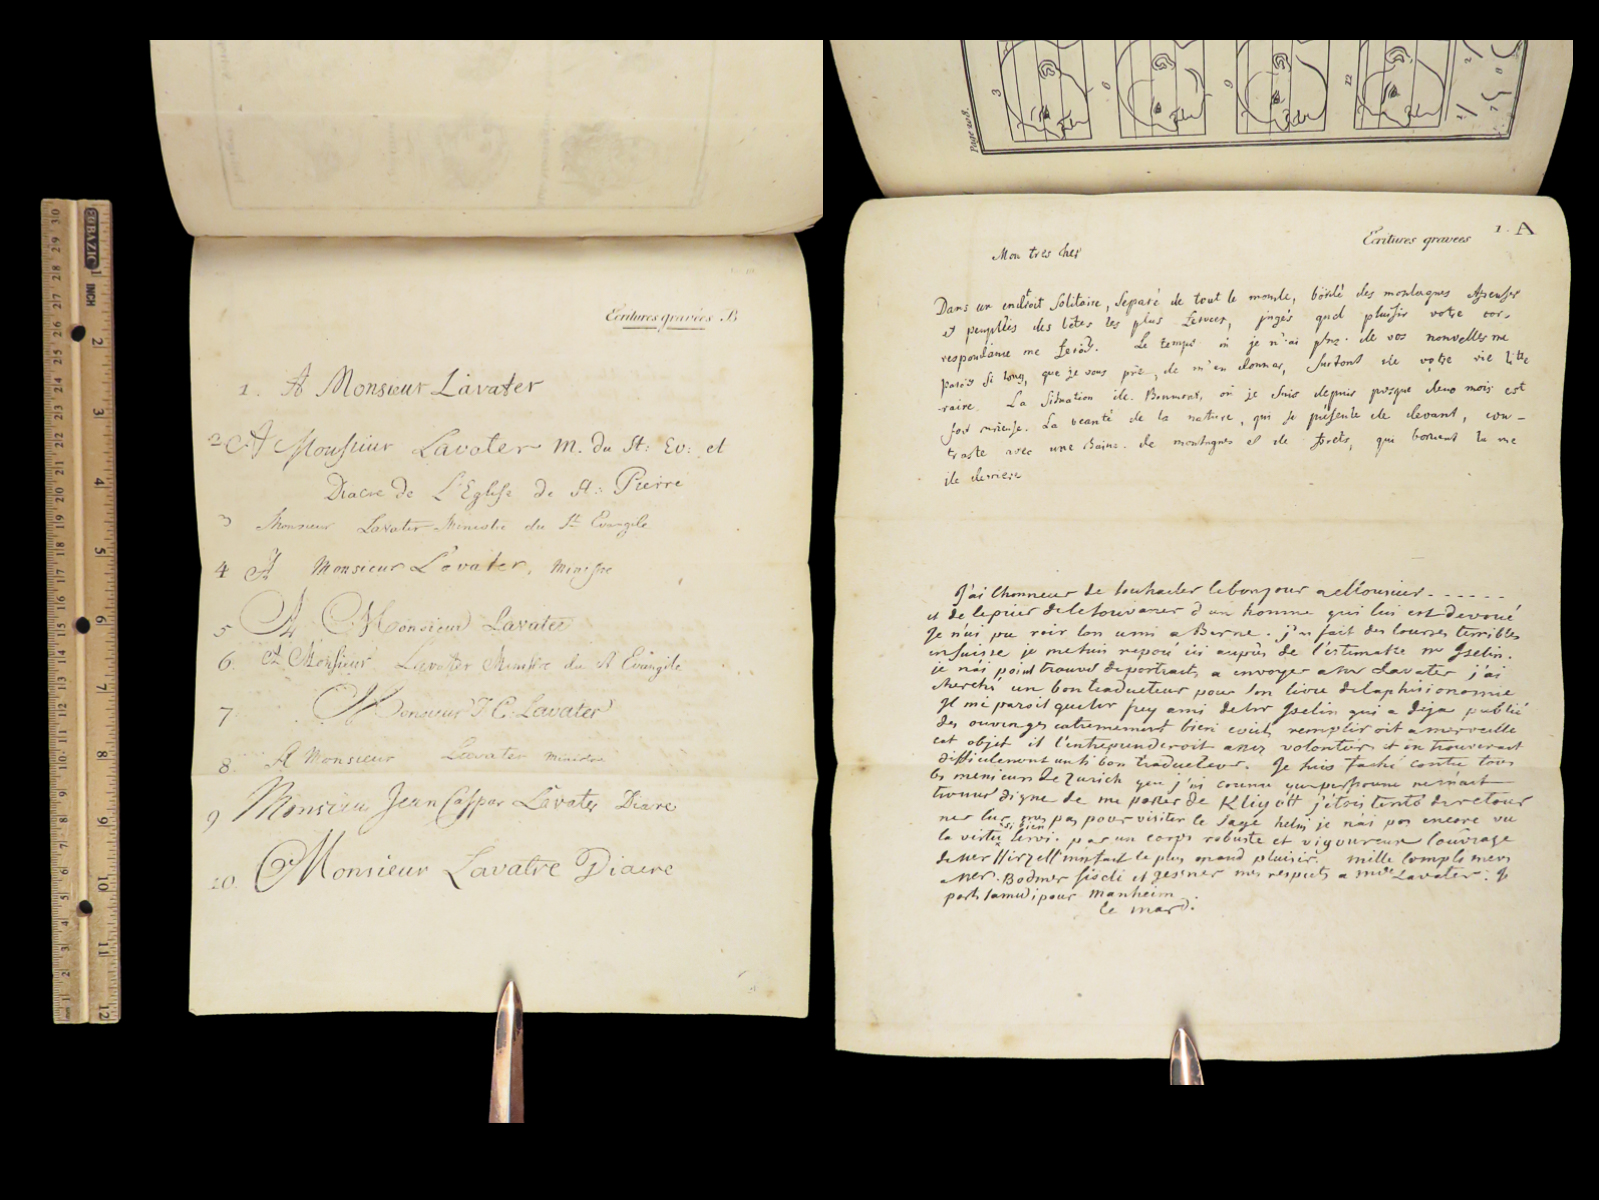 Ecritures gravées B
1. A Monsieur Lavater
2 A Monsieur Lavater M. du St: Ev: et
Diacre de L'Eglise de St: Pierre
3 Monsieur Lavater Ministre du St Evangile
4 A Monsieur Lavater, Ministre
5 A Monsieur Lavater
6. A Monsieur Lavater Ministre du St Evangile
7 Monsieur J C Lavater
8. A Monsieur Lavater ministre
9 Monsieur Jean Caspar Lavater Diacre
10. Monsieur Lavatre Diacre
EUBAZIC INCH
Page 208.
3 6 9 12
Ecritures gravées 1. A
Mon tres cher
Dans un endroit Solitaire, Separé de tout le monde, bordé des montagnes
et peuplées des bêtes les plus feroces, jugés quel plaisir votre cor-
respondance me feroit. Le temps où je n'ai plus de vos nouvelles me
paroit si long, que je vous prie, de m'en donner, surtout de votre vie litte
raire. La Situation de où je suis depuis presque deux mois est
fort curieuse. La beauté de la nature, qui se présente de devant, con-
traste avec une de montagnes et de forets, qui bornent la me
de derriere
J'ai l'honneur de souhaiter le bonjour a Monsieur - - - - - -
et de le prier de se souvenir d'un homme qui lui est devoué
Je n'ai pu voir son ami a Berne. j'ai fait des courses terribles
en suisse je me suis reposé ici auprès de l'estimable mr Iselin.
je n'ai point trouvé de portraits a envoyer a Mr Lavater j'ai
cherché un bon traducteur pour son livre de la phisionomie
Il me paroit que Mr frey ami de Mr Iselin qui a deja publié
des ouvrages extremement bien ecrits rempliroit a merveille
cet objet il l'entreprenderoit assez volontiers et on trouverait
difficilement un si bon traducteur. Je suis faché contre tous
les messieurs de Zurich que j'ai connu que personne ne m'ait
trouvé digne de me parler de Kliyogg j'etois tenté de retour
ner sur mes pas pour visiter le sage je n'ai pas encore vu
la vertu si bien servi par un corps robuste et vigoureux l'ouvrage
de Mr Hirzell m'a fait le plus grand plaisir. mille complimens
a Mrs. Bodmer et gesner mes respects a mde Lavater. Je
pars samedi pour manheim
ce mardi